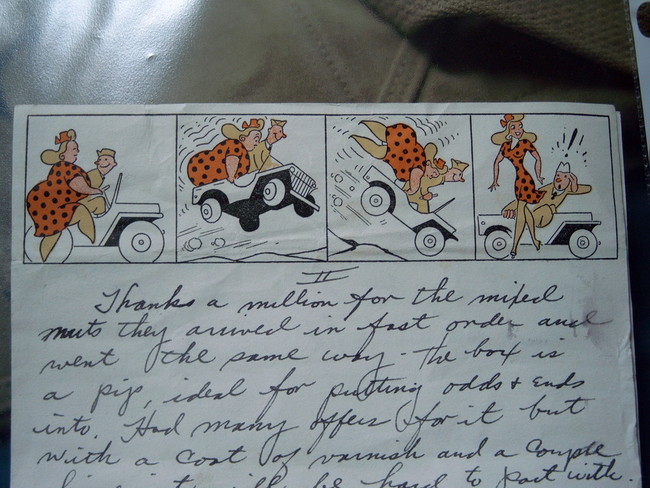 !!
II
Thanks a million for the mixed
nuts they arrived in fast order and
went the same way - The box is
a pip, ideal for putting odds & ends
into. Had many offers for it but
with a coat of varnish and a couple
be hard to part with.